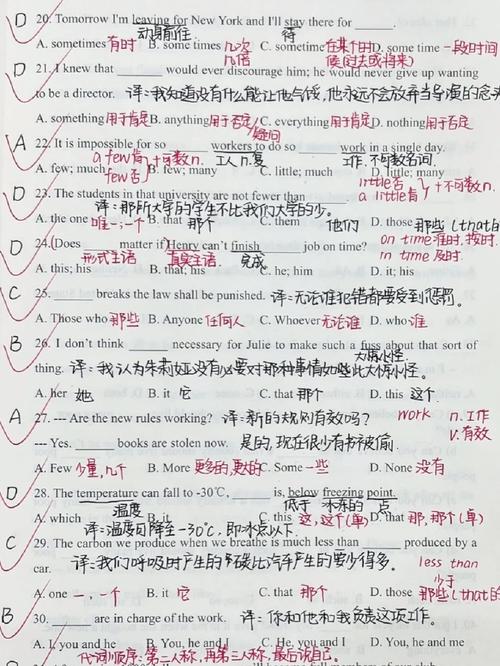 D 20. Tomorrow I'm leaving for New York and I'll stay there for ______.
动身前往 待
A. sometimes 有时 B. some times 几次 几倍 C. sometime 在某个时候(过去或将来) D. some time 一段时间
D 21. I knew that ______ would ever discourage him; he would never give up wanting
to be a director. 译:我知道没有什么能让他气馁,他永远不会放弃当导演的念头
A. something 用于肯定 B. anything 用于否定/疑问 C. everything 用于肯定 D. nothing 用于否定
A 22. It is impossible for so ______ workers to do so ______ work in a single day.
a few肯 few否 }+可数n. 工人 n.复 工作,不可数名词.
A. few; much B. few; many C. little; much D. little; many
little否 a little肯 }+不可数n.
D 23. The students in that university are not fewer than ______.
译:那所大学的学生不比我们大学的少。
A. the one 唯一,一个 B. that 那个 C. them 他们 D. those 那些(that的
D 24. (Does ______ matter if Henry can't finish ______ job on time?
形式主语 真实主语 完成 on time 准时,按时. in time 及时.
A. this; his B. that; his C. he; him D. it; his
C 25. ______ breaks the law shall be punished. 译:无论谁犯错都要受到惩罚。
A. Those who 那些 B. Anyone 任何人 C. Whoever 无论谁 D. who 谁
B 26. I don't think ______ necessary for Julie to make such a fuss about that sort of
大惊小怪
thing. 译:我认为朱莉娅没有必要对那种事情如此大惊小怪。
A. her 她 B. it 它 C. that 那个 D. this 这个.
A 27. --- Are the new rules working? 译:新的规则有效吗? work n.工作 v.有效
--- Yes. ______ books are stolen now. 是的,现在很少有书被偷.
A. Few 少量,几个 B. More 更多的,更大的 C. Some 一些 D. None 没有
D 28. The temperature can fall to -30℃, ______ is, below freezing point.
温度 低于 冰冻的 点
A. which B. it 它 C. this 这,这个(单) D. that 那,那个(单)
译:温度可降至-30℃,即冰点以下.
C 29. The carbon we produce when we breathe is much less than ______ produced by a
car. 译:我们呼吸时产生的碳比汽车产生的要少得多。 less than 少于
A. one 一,一个 B. it 它 C. that 那个 D. those 那些(that的
B 30. ______ are in charge of the work. 译:你和他和我负责这项工作。
A. I, you and he B. You, he and I C. He, you and I D. You, he and me
代词顺序:第二人称,再第三人称,最后说自己.